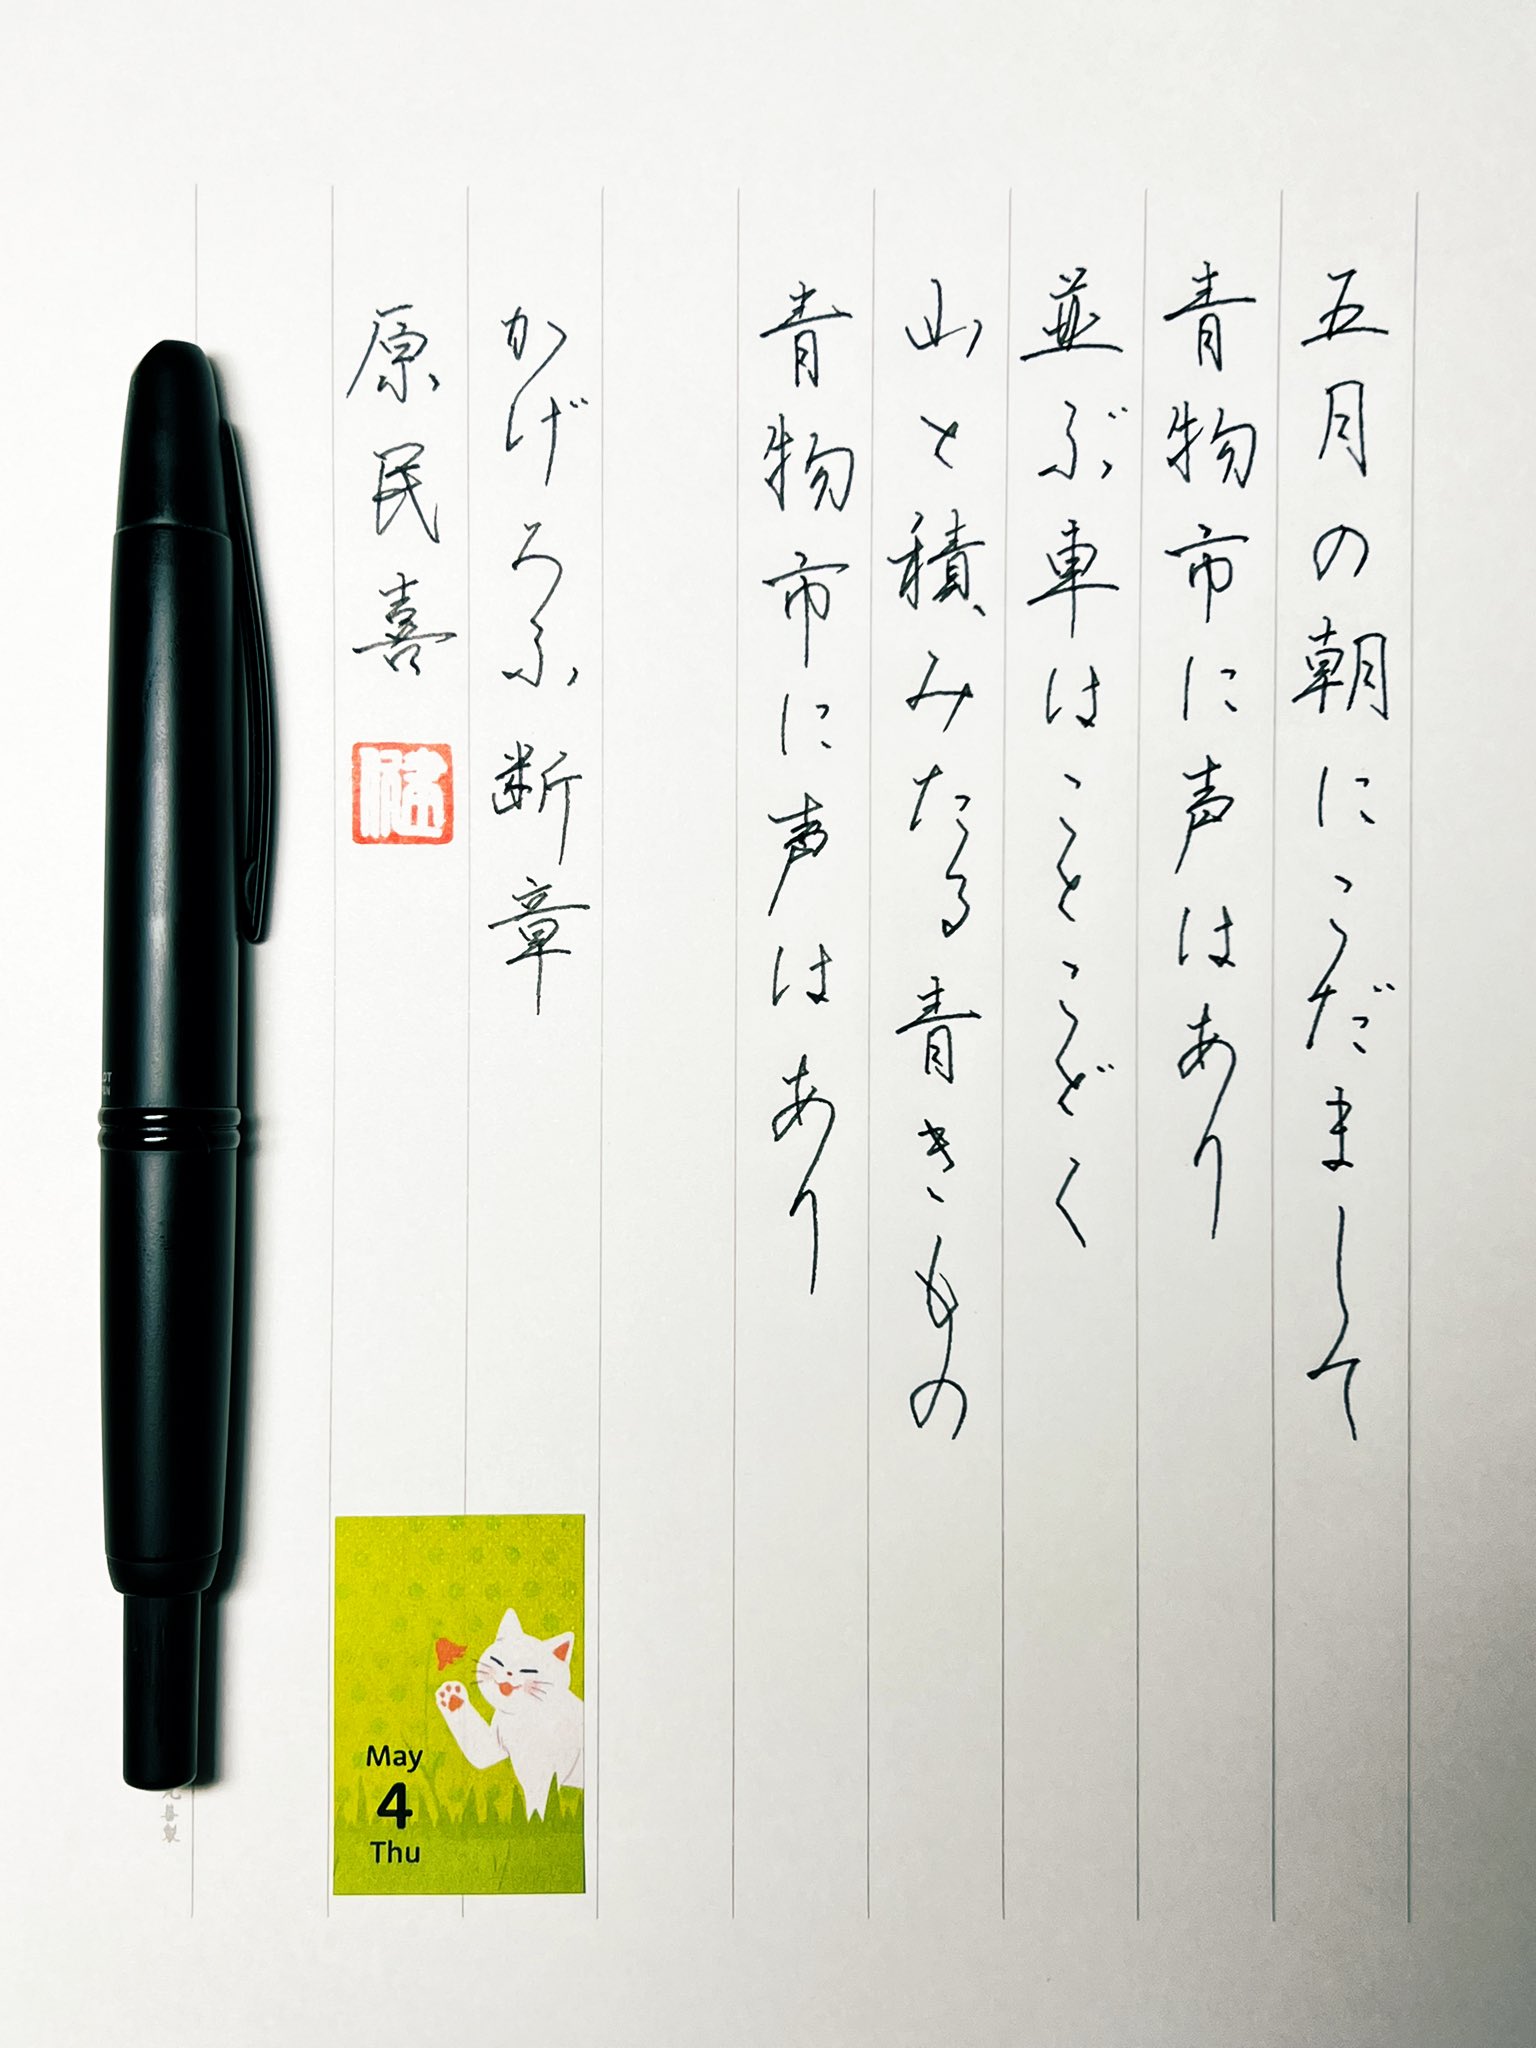 五月の朝にこだまして
青物市に声はあり
並ぶ車はことごとく
山と積みたる青きもの
青物市に声はあり
かげろふ断章
原民喜
May
4
Thu